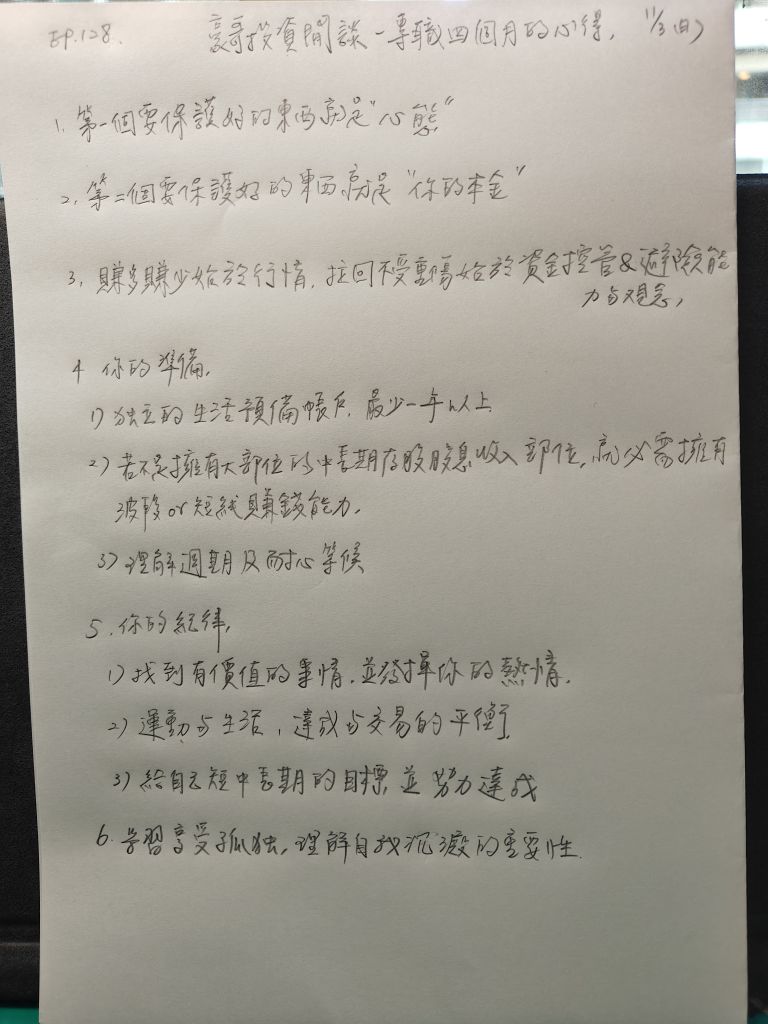 EP.128. 哥投資閒談-專職四個月的心得, 11/3(日)
1. 第一個要保護好的東西就是"心態"
2. 第二個要保護好的東西就是"你的本金"
3. 賺多賺少始於行情, 拉回不受重傷始於資金控管&避險能
力与观念,
4 你的準備,
1) 独立的生活預備帳戶, 最少一年以上
2) 若不是擁有大部位的中長期存股股息收入部位, 就必需擁有
波段or短線賺錢能力,
3) 理解週期及耐心等候
5. 你的紀律,
1) 找到有價值的事情, 並發揮你的熱情.
2) 運動与生活, 達成与交易的平衡
3) 給自己短中長期的目標, 並努力達成
6. 学習享受孤独, 理解自我沉澱的重要性.